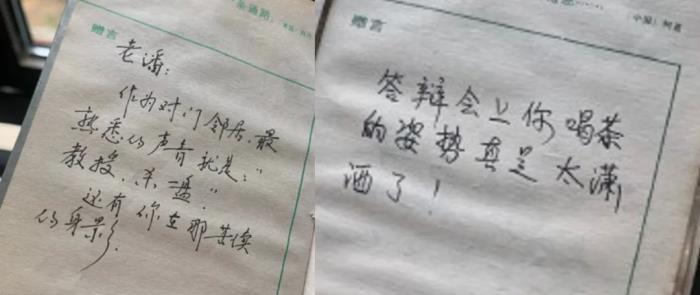 赠言
老潘：
作为对门邻居，最
熟悉的声音就是："
教授，杀一盘。"
还有你在那苦候
的身影。
赠言
答辩会上你喝茶
的姿势真是太潇
洒了！